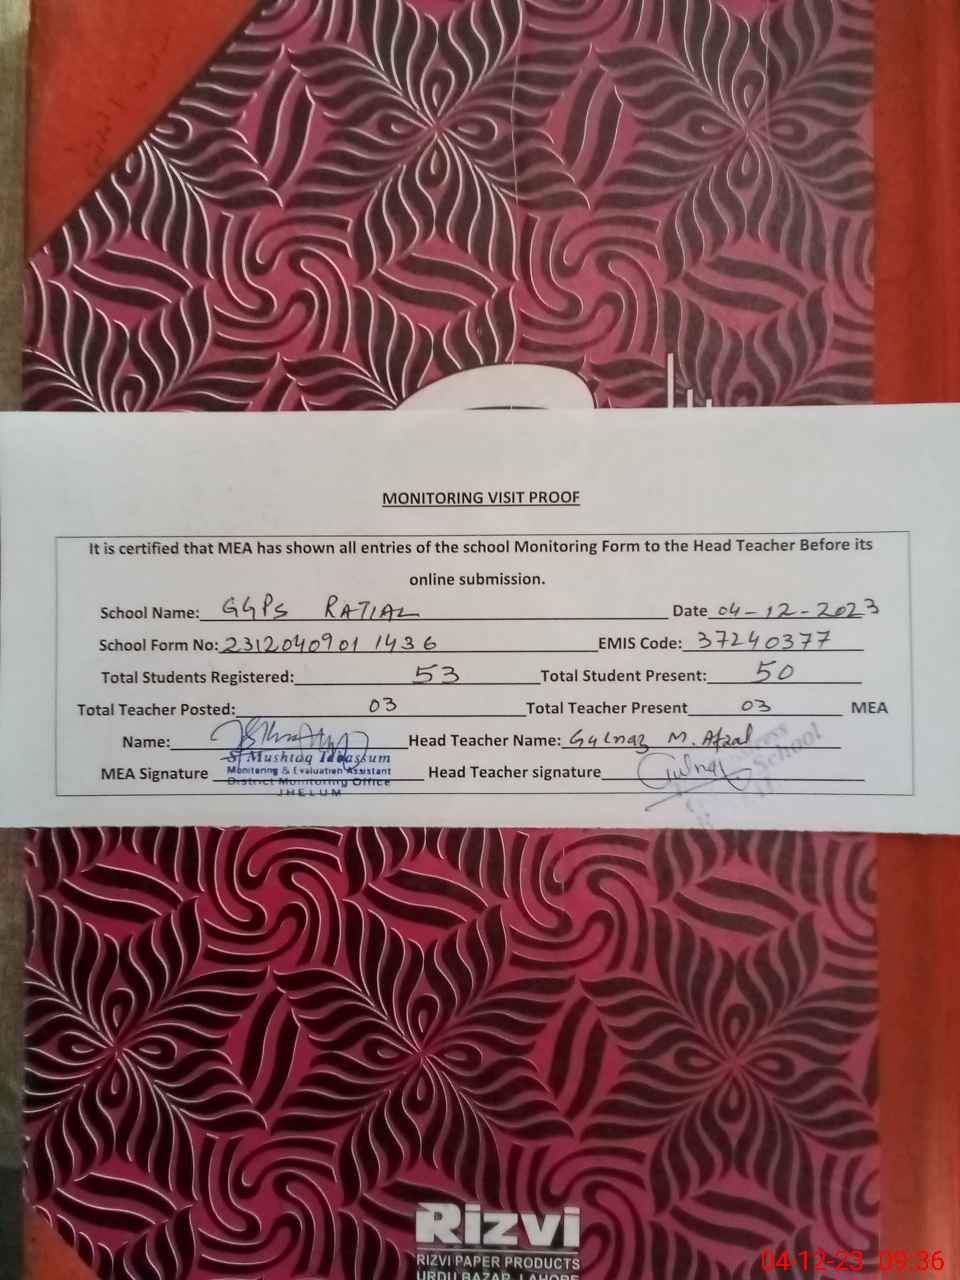 MONITORING VISIT PROOF
It is certified that MEA has shown all entries of the school Monitoring Form to the Head Teacher Before its
online submission.
School Name: GGPS RATIAL Date 04-12-2023
School Form No: 2312040901 1436 EMIS Code: 37240377
Total Students Registered: 53 Total Student Present: 50
Total Teacher Posted: 03 Total Teacher Present 03 MEA
Name: Head Teacher Name: Gulnaz M. Afzal
MEA Signature Head Teacher signature Gulnaz
S Mushtaq
Monitoring & Evaluation Assistant
District Monitoring Office
JHELUM
School
Rizvi
RIZVI PAPER PRODUCTS
URDU BAZAR, LAHORE
04-12-23 09:36